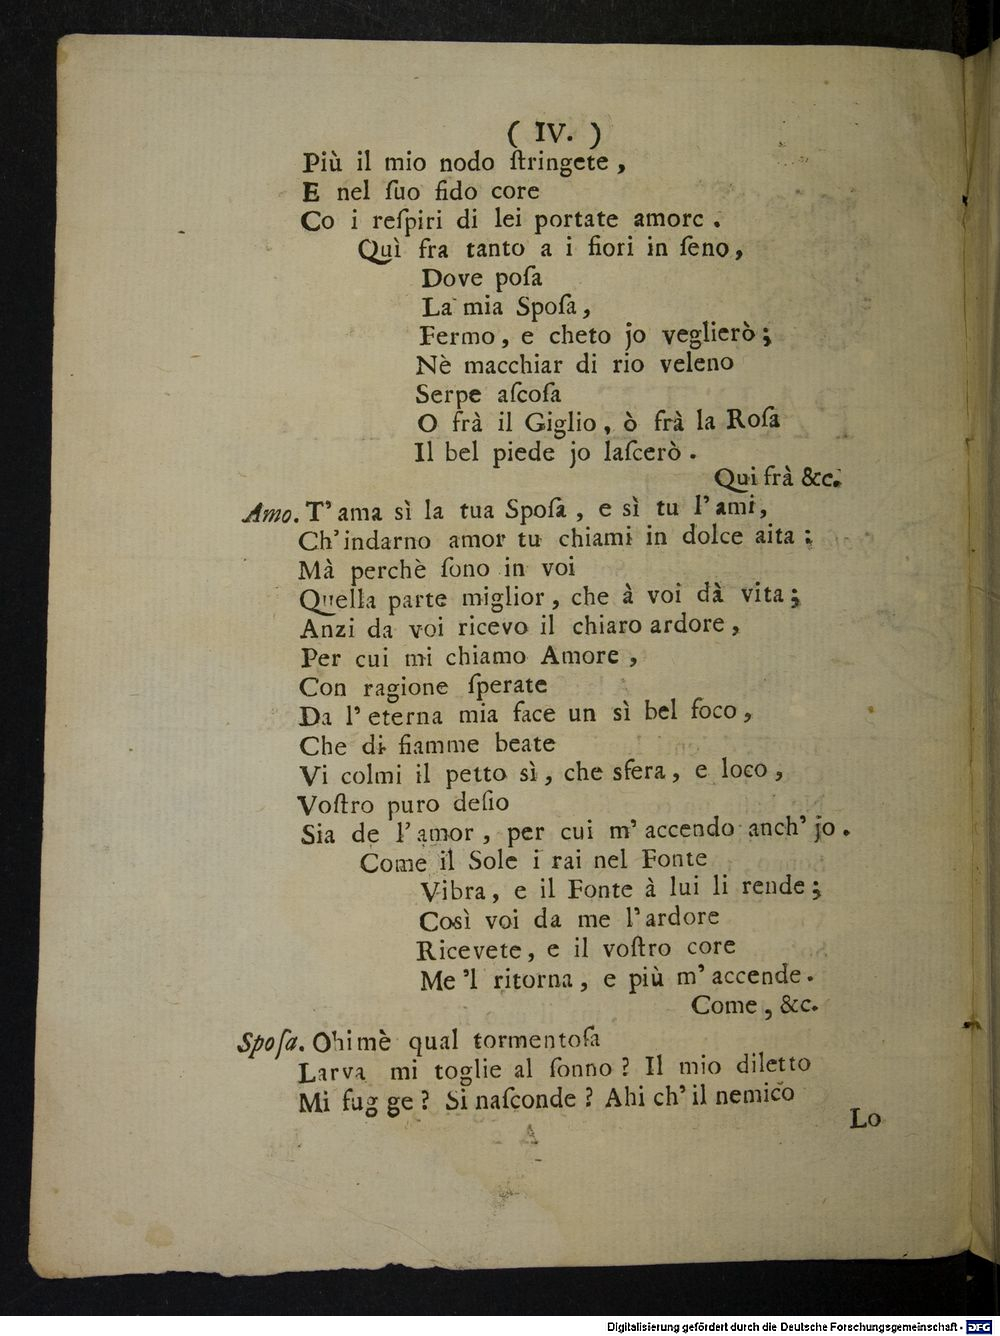 ( IV. )
Più il mio nodo ſtringete ,
E nel ſuo fido core
Co i reſpiri di lei portate amore .
Quì fra tanto a i fiori in ſeno,
Dove poſa
La mia Spoſa,
Fermo , e cheto jo veglierò ;
Nè macchiar di rio veleno
Serpe aſcoſa
O frà il Giglio , ò frà la Roſa
Il bel piede jo laſcerò .
Qui frà &c.
Amo. T' ama sì la tua Spoſa , e sì tu l' ami,
Ch' indarno amor tu chiami in dolce aita ;
Mà perchè ſono in voi
Quella parte miglior , che à voi dà vita ;
Anzi da voi ricevo il chiaro ardore ,
Per cui mi chiamo Amore ,
Con ragione ſperate
Da l' eterna mia face un sì bel foco ,
Che di fiamme beate
Vi colmi il petto sì , che sfera , e loco ,
Voſtro puro deſio
Sia de l' amor , per cui m' accendo anch' jo .
Come il Sole i rai nel Fonte
Vibra , e il Fonte à lui li rende ;
Così voi da me l' ardore
Ricevete , e il voſtro core
Me 'l ritorna , e più m' accende .
Come , &c.
Spoſa. Ohimè qual tormentoſa
Larva mi toglie al ſonno ? Il mio diletto
Mi fug ge ? Si naſconde ? Ahi ch' il nemico
Lo
Digitalisierung gefördert durch die Deutsche Forschungsgemeinschaft - DFG